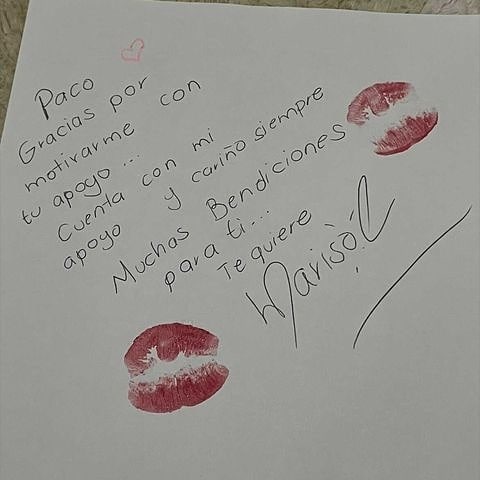 Paco
Gracias por
motivarme con
tu apoyo...
Cuenta con mi
apoyo y cariño siempre
Muchas Bendiciones
para ti...
Te quiere
Marisol